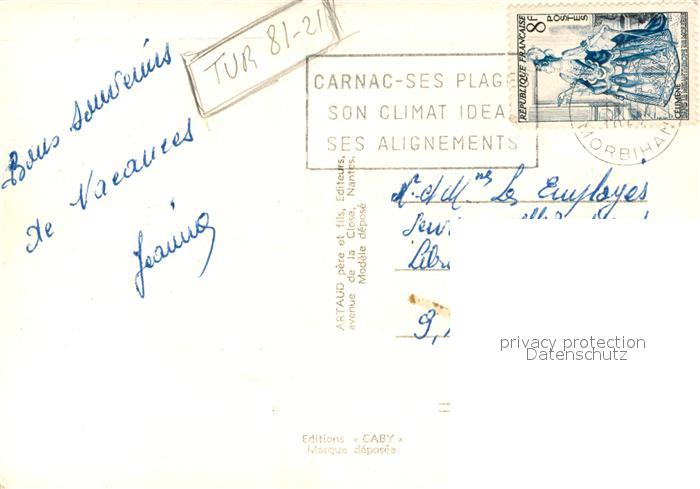 TUR 81-21
Bons souvenirs
de Vacances
Jeanine
CARNAC-SES PLAGE
SON CLIMAT IDEA
SES ALIGNEMENTS
8F
POSTES
REPUBLIQUE FRANÇAISE
CELIMENE
MORBIHAN
ARTAUD père et fils, Editeurs,
avenue de la Close, Nantes.
Modèle déposé
Mr et Mmes Les Employés
9,
privacy protection
Datenschutz
Editions « CABY »
Marque déposée